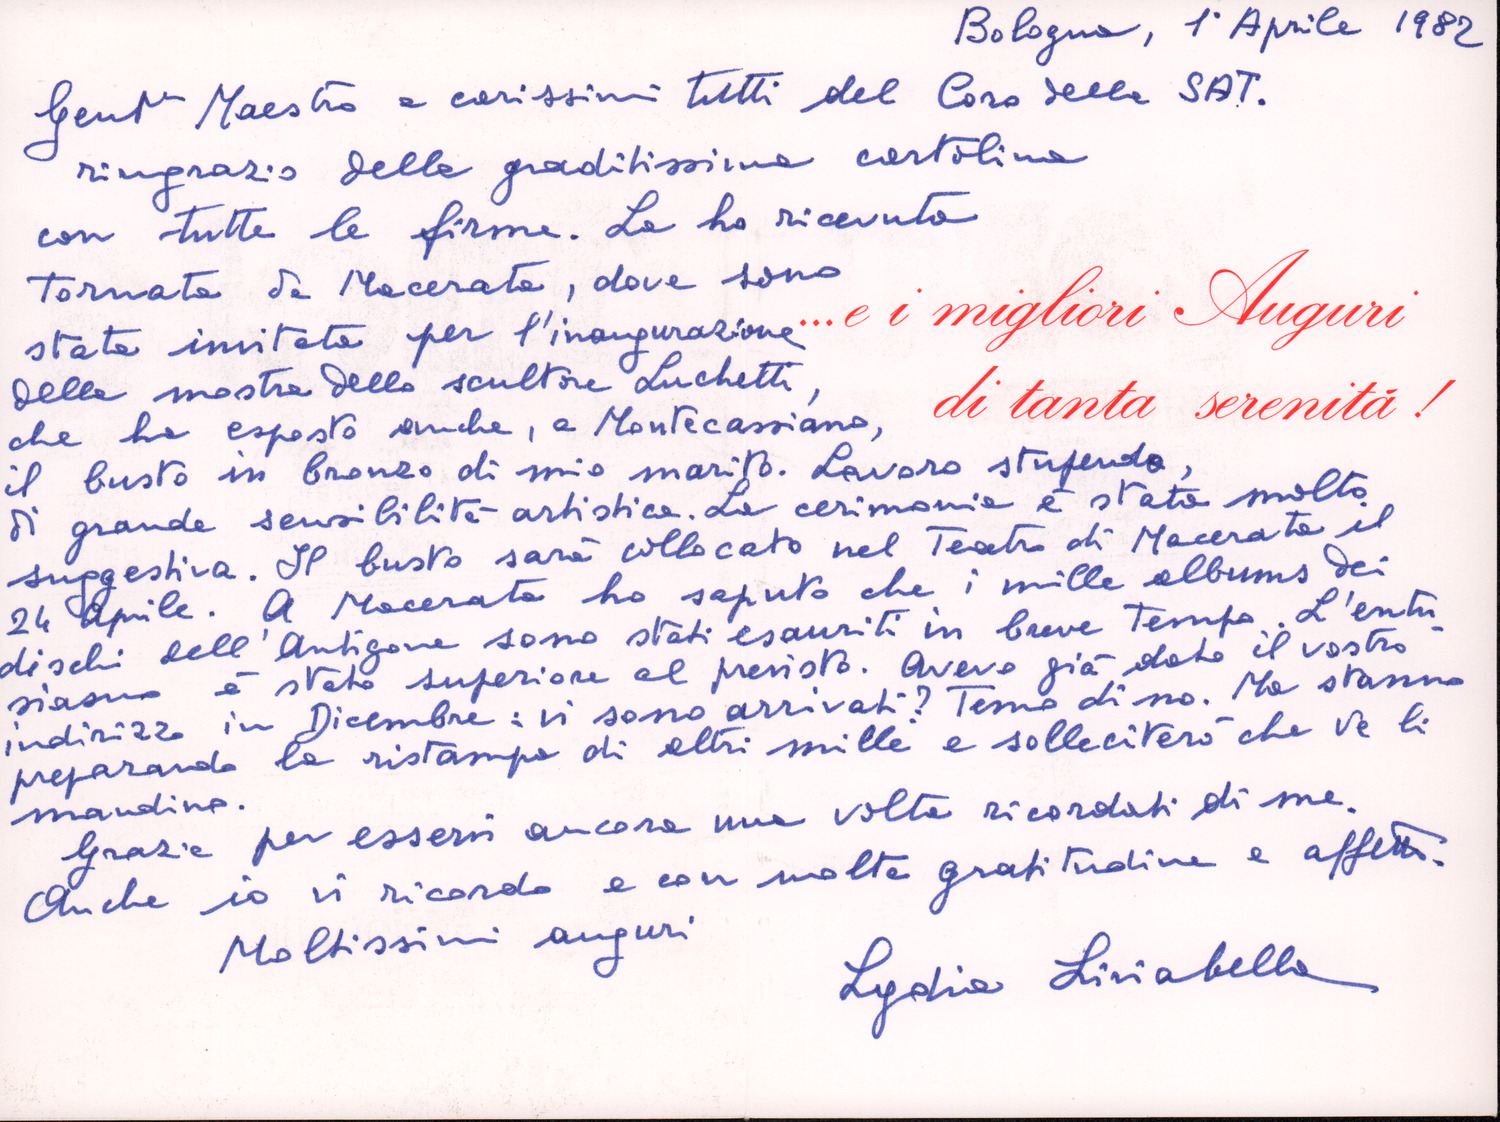 Bologna, 1° Aprile 1982
Gent.mo Maestro e carissimi tutti del Coro della SAT.
ringrazio della graditissima cartolina
con tutte le firme. La ho ricevuta
tornata da Macerata, dove sono
stata invitata per l'inaugurazione
...e i migliori Auguri
di tanta serenità !
della mostra dello scultore Luchetti,
che ha esposto anche, a Montecassiano,
il busto in bronzo di mio marito. Lavoro stupendo,
di grande sensibilità artistica. La cerimonia è stata molto
suggestiva. Il busto sarà collocato nel Teatro di Macerata il
24 Aprile. A Macerata ho saputo che i mille albums dei
dischi dell'Antigone sono stati esauriti in breve tempo. L'entu
siasmo è stato superiore al previsto. Avevo già dato il vostro
indirizzo in Dicembre: vi sono arrivati? Temo di no. Ma stanno
preparando la ristampa di altri mille e solleciterò che ve li
mandino.
Grazie per esservi ancora una volta ricordati di me.
Anche io vi ricordo e con molta gratitudine e affetto.
Moltissimi auguri
Lydia Liviabella